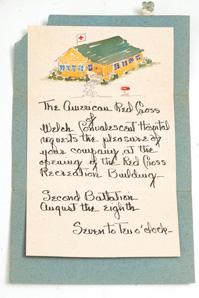 The American Red Cross
of
Welch Convalescent Hospital
requests the pleasure of
your company at the
opening of the Red Cross
Recreation Building
Second Battalion
August the eighth
Seven to Ten o'clock